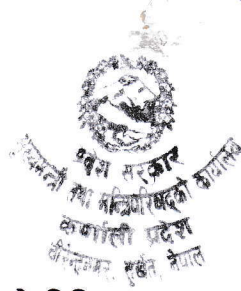 प्रदेश सरकार
मुख्यमन्त्री तथा मन्त्रिपरिषद्को कार्यालय
कर्णाली प्रदेश
वीरेन्द्रनगर, सुर्खेत, नेपाल